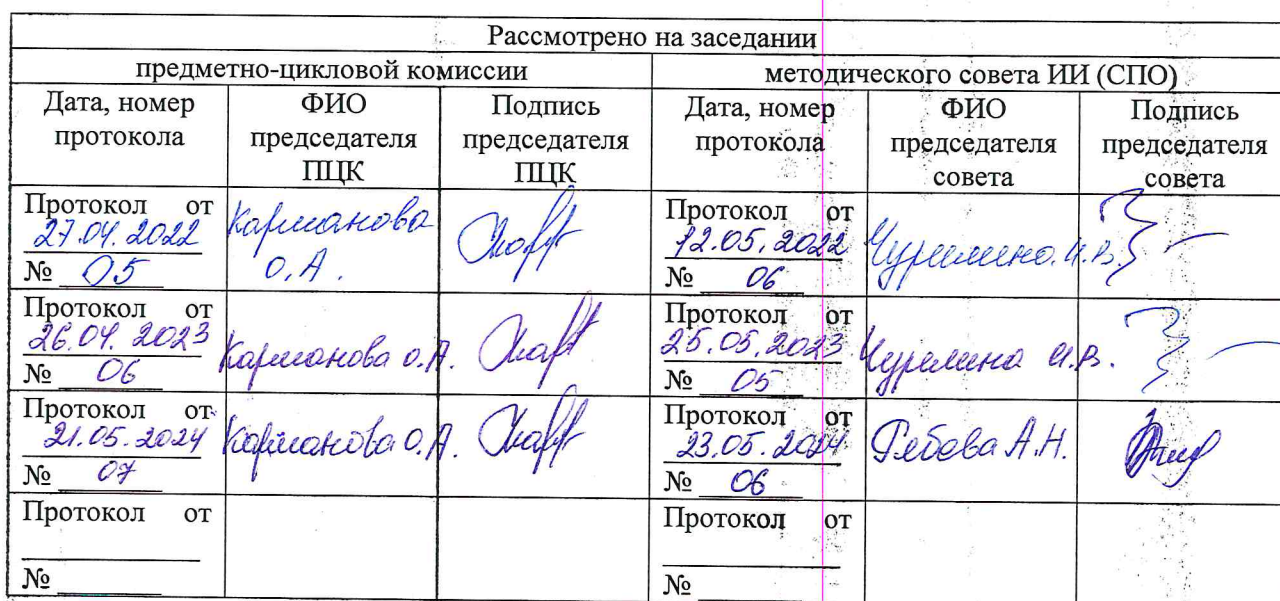 Рассмотрено на заседании
предметно-цикловой комиссии
методического совета ИИ (СПО)
Дата, номер протокола
ФИО председателя ПЦК
Подпись председателя ПЦК
Дата, номер протокола
ФИО председателя совета
Подпись председателя совета
Протокол от
27.04.2022
№ 05
Карманова
О.А.
Протокол от
12.05.2022
№ 06
Чурилина И.В.
Протокол от
26.04.2023
№ 06
Карманова О.А.
Протокол от
25.05.2023
№ 05
Чурилина И.В.
Протокол от
21.05.2024
№ 07
Карманова О.А.
Протокол от
23.05.2024
№ 06
А.Н.
Протокол от
№
Протокол от
№